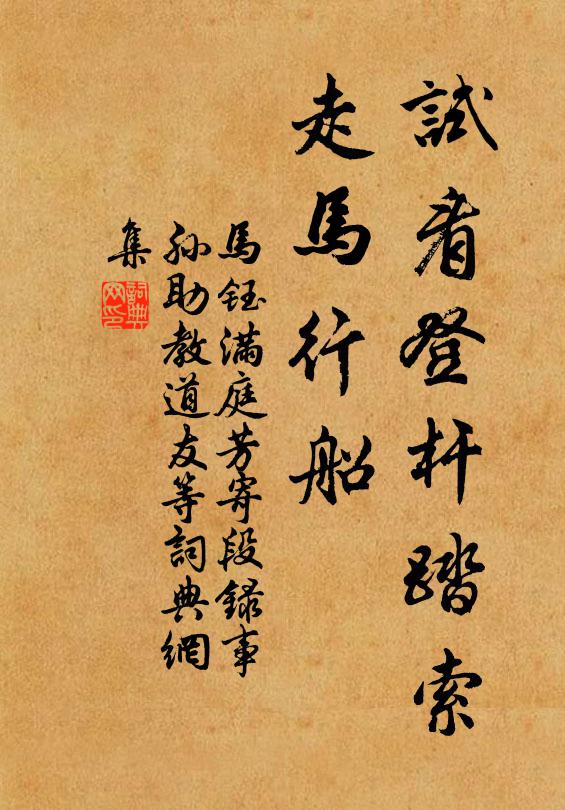 試看登杆踏索
走馬行船
馬鈺滿庭芳寄段錄事
孫助教道友等詞典網
集
詞典網印